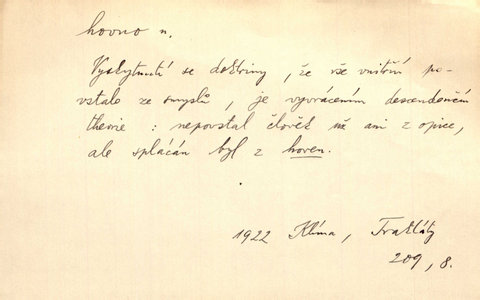 hovno n.
Vyskytnutí se doktriny, že vše vnitřní po-
vstalo ze smyslů, je vyvrácením descendenční
theorie: nepovstal člověk už ani z opice,
ale splácán byl z hoven.
1922 Klíma, Traktáty
209, 8.